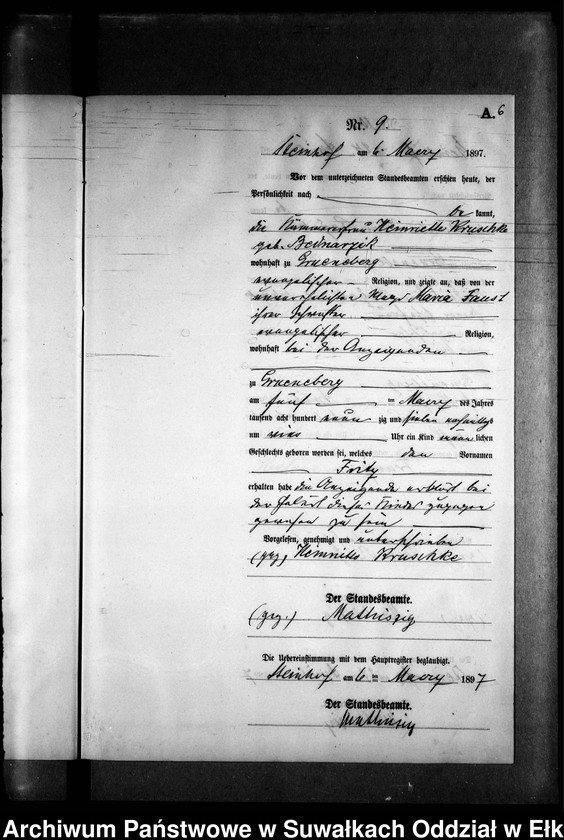 A. 6
Nr. 9.
Steinhof am 6. Maerz 1897.
Vor dem unterzeichneten Standesbeamten erschien heute, der
Persönlichkeit nach
be kannt,
die Kämmererfrau Heinriette Kruschke
geb. Bednarzik
wohnhaft zu Grueneberg
evangelischer Religion, und zeigte an, daß von der
unverehelichten Magd Maria Faust
ihrer Schwester
evangelischer Religion,
wohnhaft bei der Anzeigenden
zu Grueneberg
am fünf ten Maerz des Jahres
tausend acht hundert neun zig und sieben nachmittags
um vier Uhr ein Kind männ lichen
Geschlechts geboren worden sei, welches den Vornamen
Fritz
erhalten habe die Anzeigende erklärt bei
der Geburt dieses Kindes zugegen
gewesen zu sein
Vorgelesen, genehmigt und unterschrieben
(gez.) Heinriette Kruschke
Der Standesbeamte.
(gez.) Mathiszig
Die Uebereinstimmung mit dem Hauptregister beglaubigt.
Steinhof am 6 ten Maerz 1897
Der Standesbeamte.
Mathiszig
Archiwum Państwowe w Suwałkach Oddział w Ełk